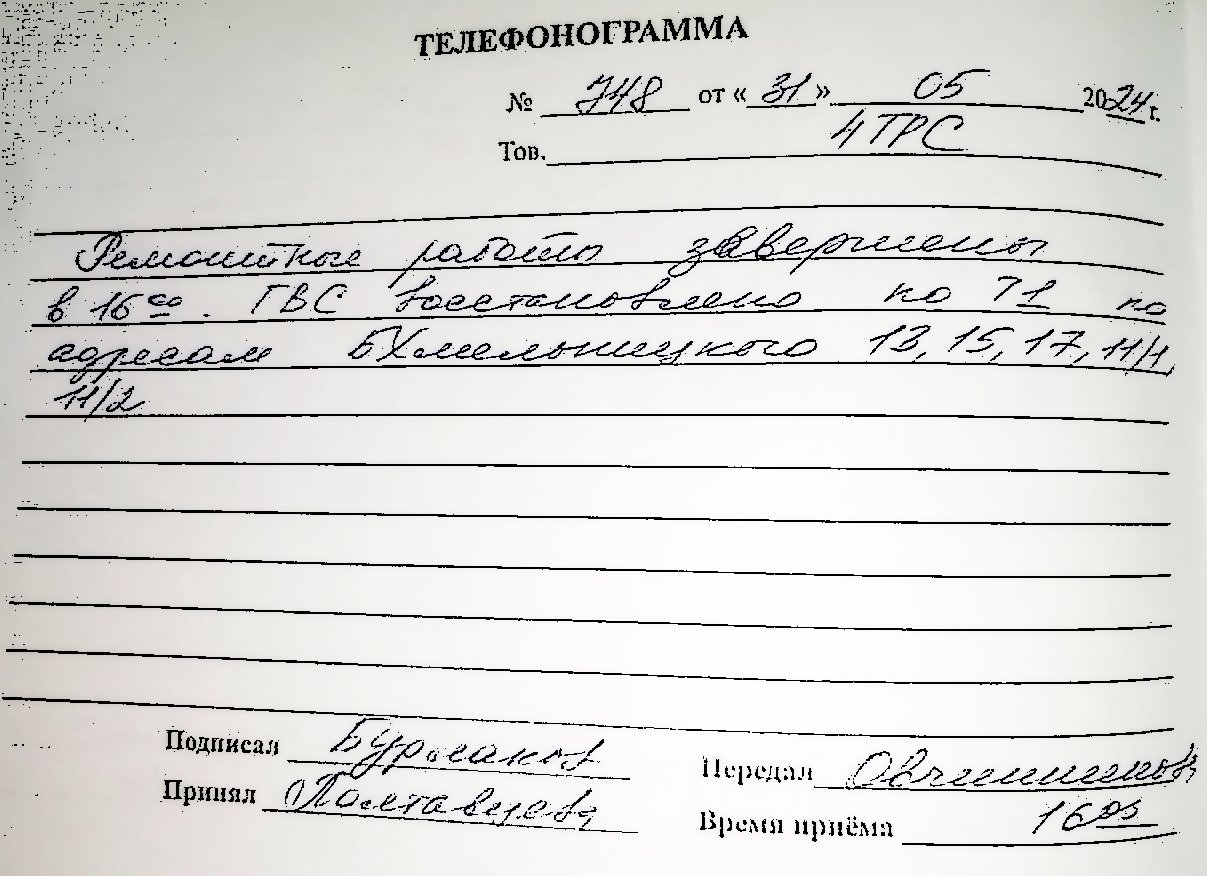 ТЕЛЕФОНОГРАММА
№ 748 от «31» 05 2024 г.
Тов. 4 ТРС
Ремонтные работы завершены
в 16 00. ГВС восстановлено по 71 по
адресам Б Хмельницкого 13, 15, 17, 11/1,
11/2
Подписал Бурлаков Передал Овчинников
Принял Полтавцева Время приёма 16